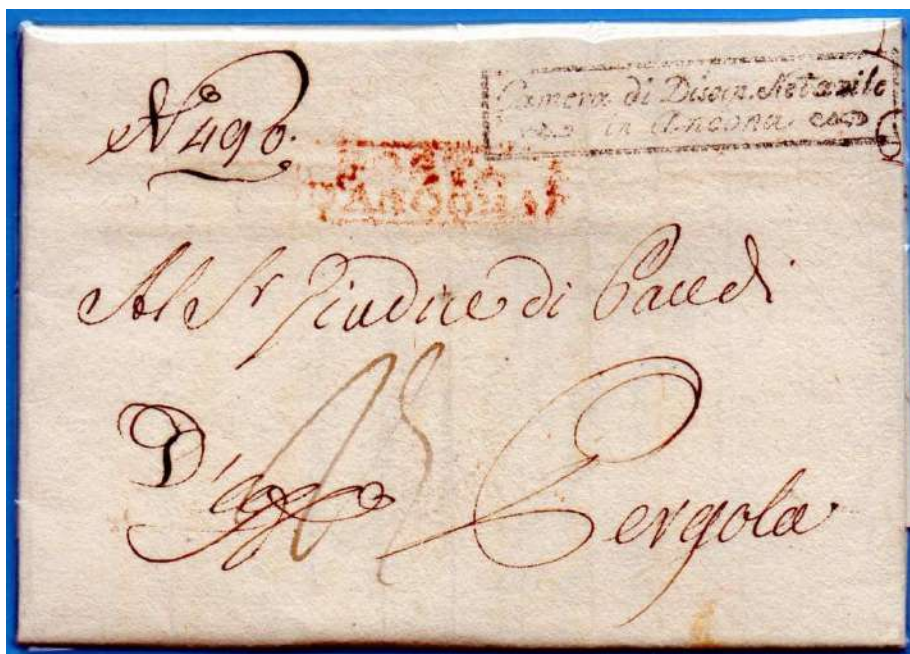 Nº 490.
Camera di Discip. Notarile
in Ancona
Ancona
Al Sr Giudice di Pace di
D'uff.o
Pergola